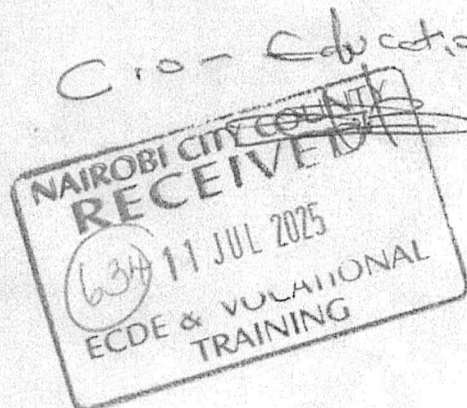 C.o - Educatio
NAIROBI CITY COUNTY
RECEIVED
634 11 JUL 2025
ECDE & VOCATIONAL
TRAINING